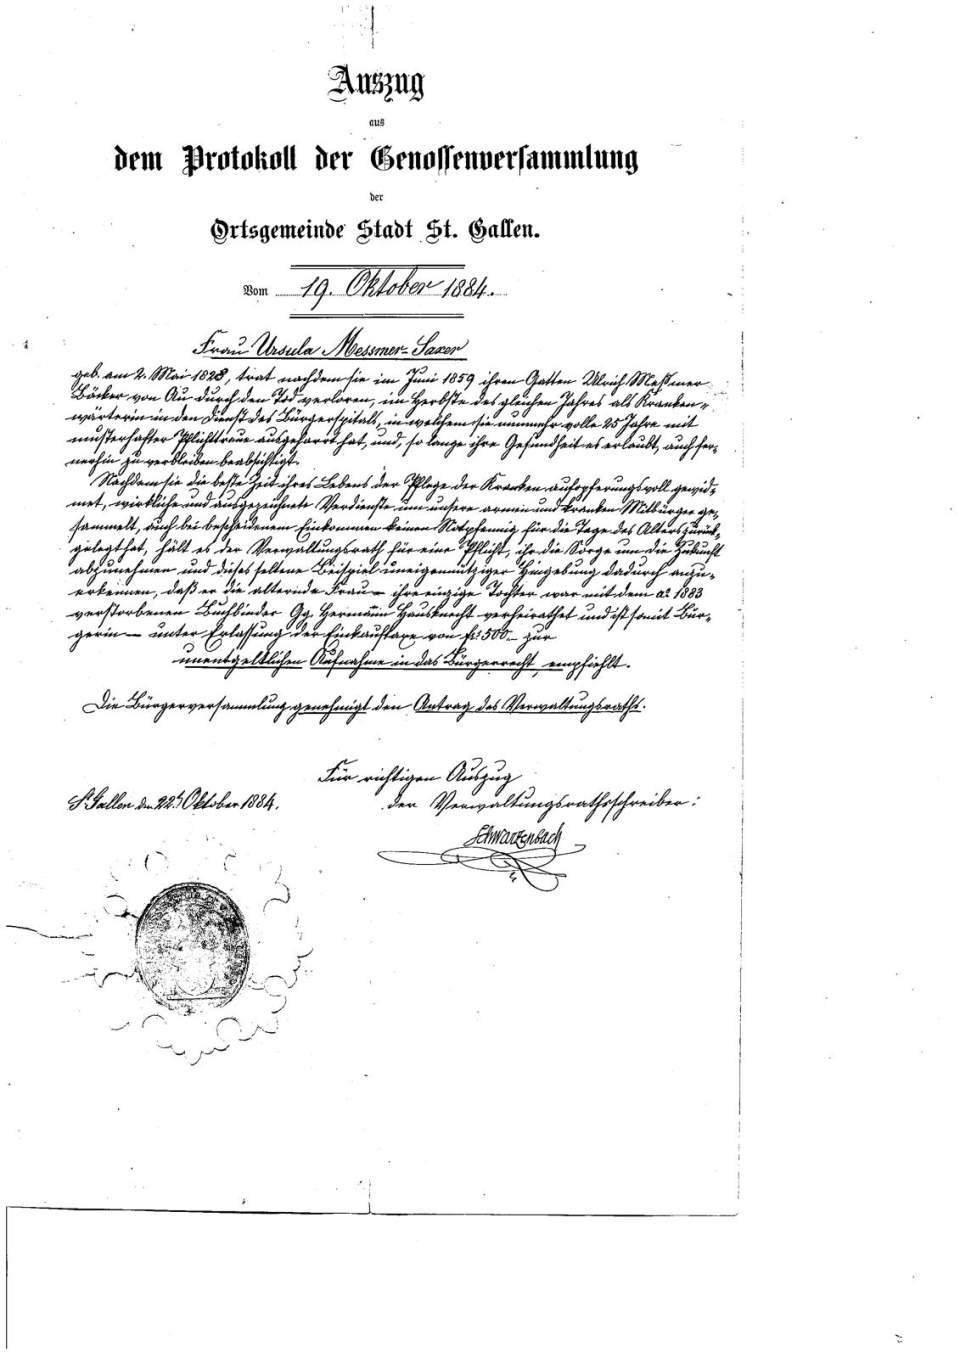 Auszug
aus
dem Protokoll der Genossenversammlung
der
Ortsgemeinde Stadt St. Gallen.
Vom 19. Oktober 1884.
Frau Ursula Messmer-Saxer
geb. am 2. Mai 1828, trat nachdem sie im Juni 1859 ihren Gatten Ulrich Meßmer
Bäcker von Au durch den Tod verloren, im Herbste des gleichen Jahres als Kranken-
wärterin in den Dienst des Bürgerspitals, in welchem sie nunmehr volle 25 Jahre mit
musterhafter Pflichttreue ausgeharrt hat, und, so lange ihre Gesundheit es erlaubt, auch fer-
nerhin zu verbleiben beabsichtigt.
Nachdem sie die beste Zeit ihres Lebens der Pflege der Kranken aufopferungsvoll gewid-
met, wirkliche und ausgezeichnete Verdienste um unsere armen und kranken Mitbürger ge-
sammelt, auch bei bescheidenem Einkommen keinen Notpfennig für die Tage des Alters zurück-
gelegt hat, hält es der Verwaltungsrath für eine Pflicht, ihr die Sorge um die Zukunft
abzunehmen und dieses seltene Beispiel uneigennütziger Hingebung dadurch anzu-
erkennen, daß er die alternde Frau – ihre einzige Tochter war mit dem ao. 1883
verstorbenen Buchbinder Gg. Hermann Hausknecht verheirathet und ist somit Bür-
gerin – unter Erlassung der Einkaufstaxe von fr. 500.– zur
unentgeltlichen Aufnahme in das Bürgerrecht, empfiehlt.
Die Bürgerversammlung genehmigt den Antrag des Verwaltungsraths.
Für richtigen Auszug
St. Gallen den 22t. Oktober 1884.
der Verwaltungsrathsschreiber:
Schwarzenbach